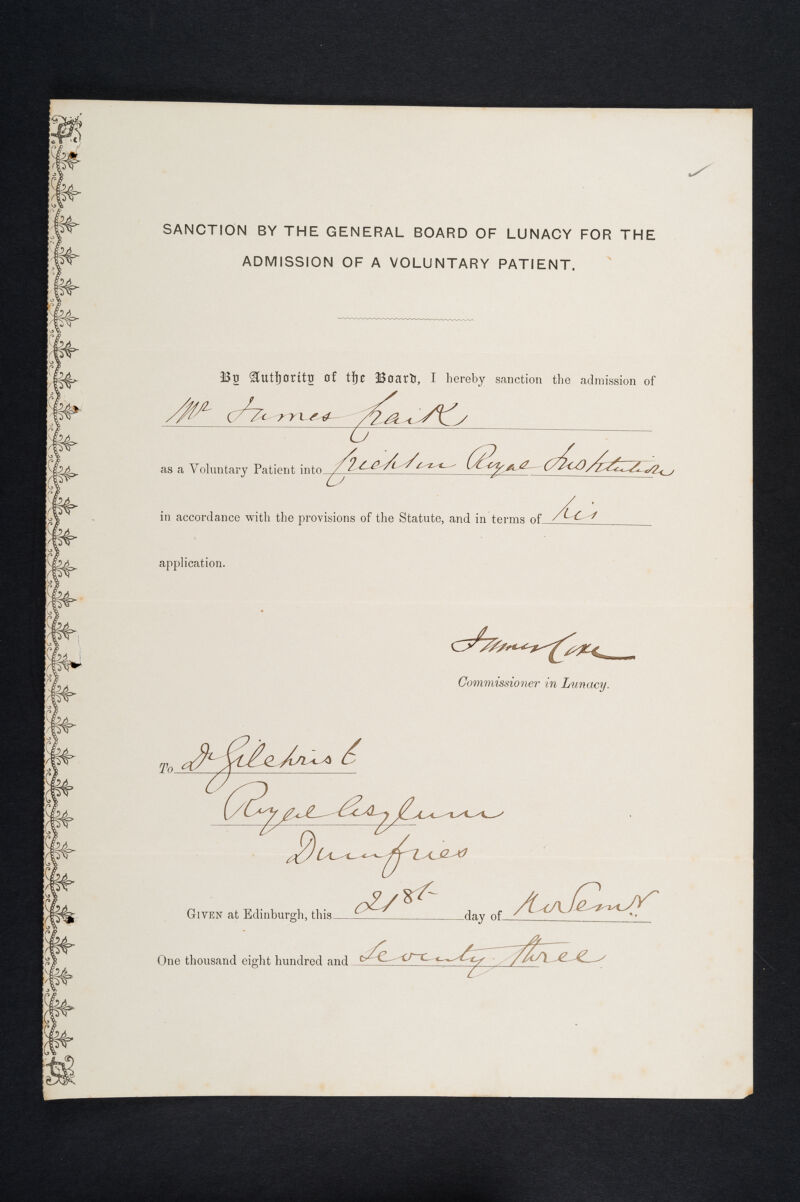 SANCTION BY THE GENERAL BOARD OF LUNACY FOR THE
ADMISSION OF A VOLUNTARY PATIENT.
By Authority of the Board, I hereby sanction the admission of
Mr James Craik
as a Voluntary Patient into Crichton Royal Institution
in accordance with the provisions of the Statute, and in terms of his
application.
James Coxe
Commissioner in Lunacy.
To Dr Gilchrist
Royal Asylum
Dumfries
GIVEN at Edinburgh, this 21st day of Novemr
One thousand eight hundred and Seventy three